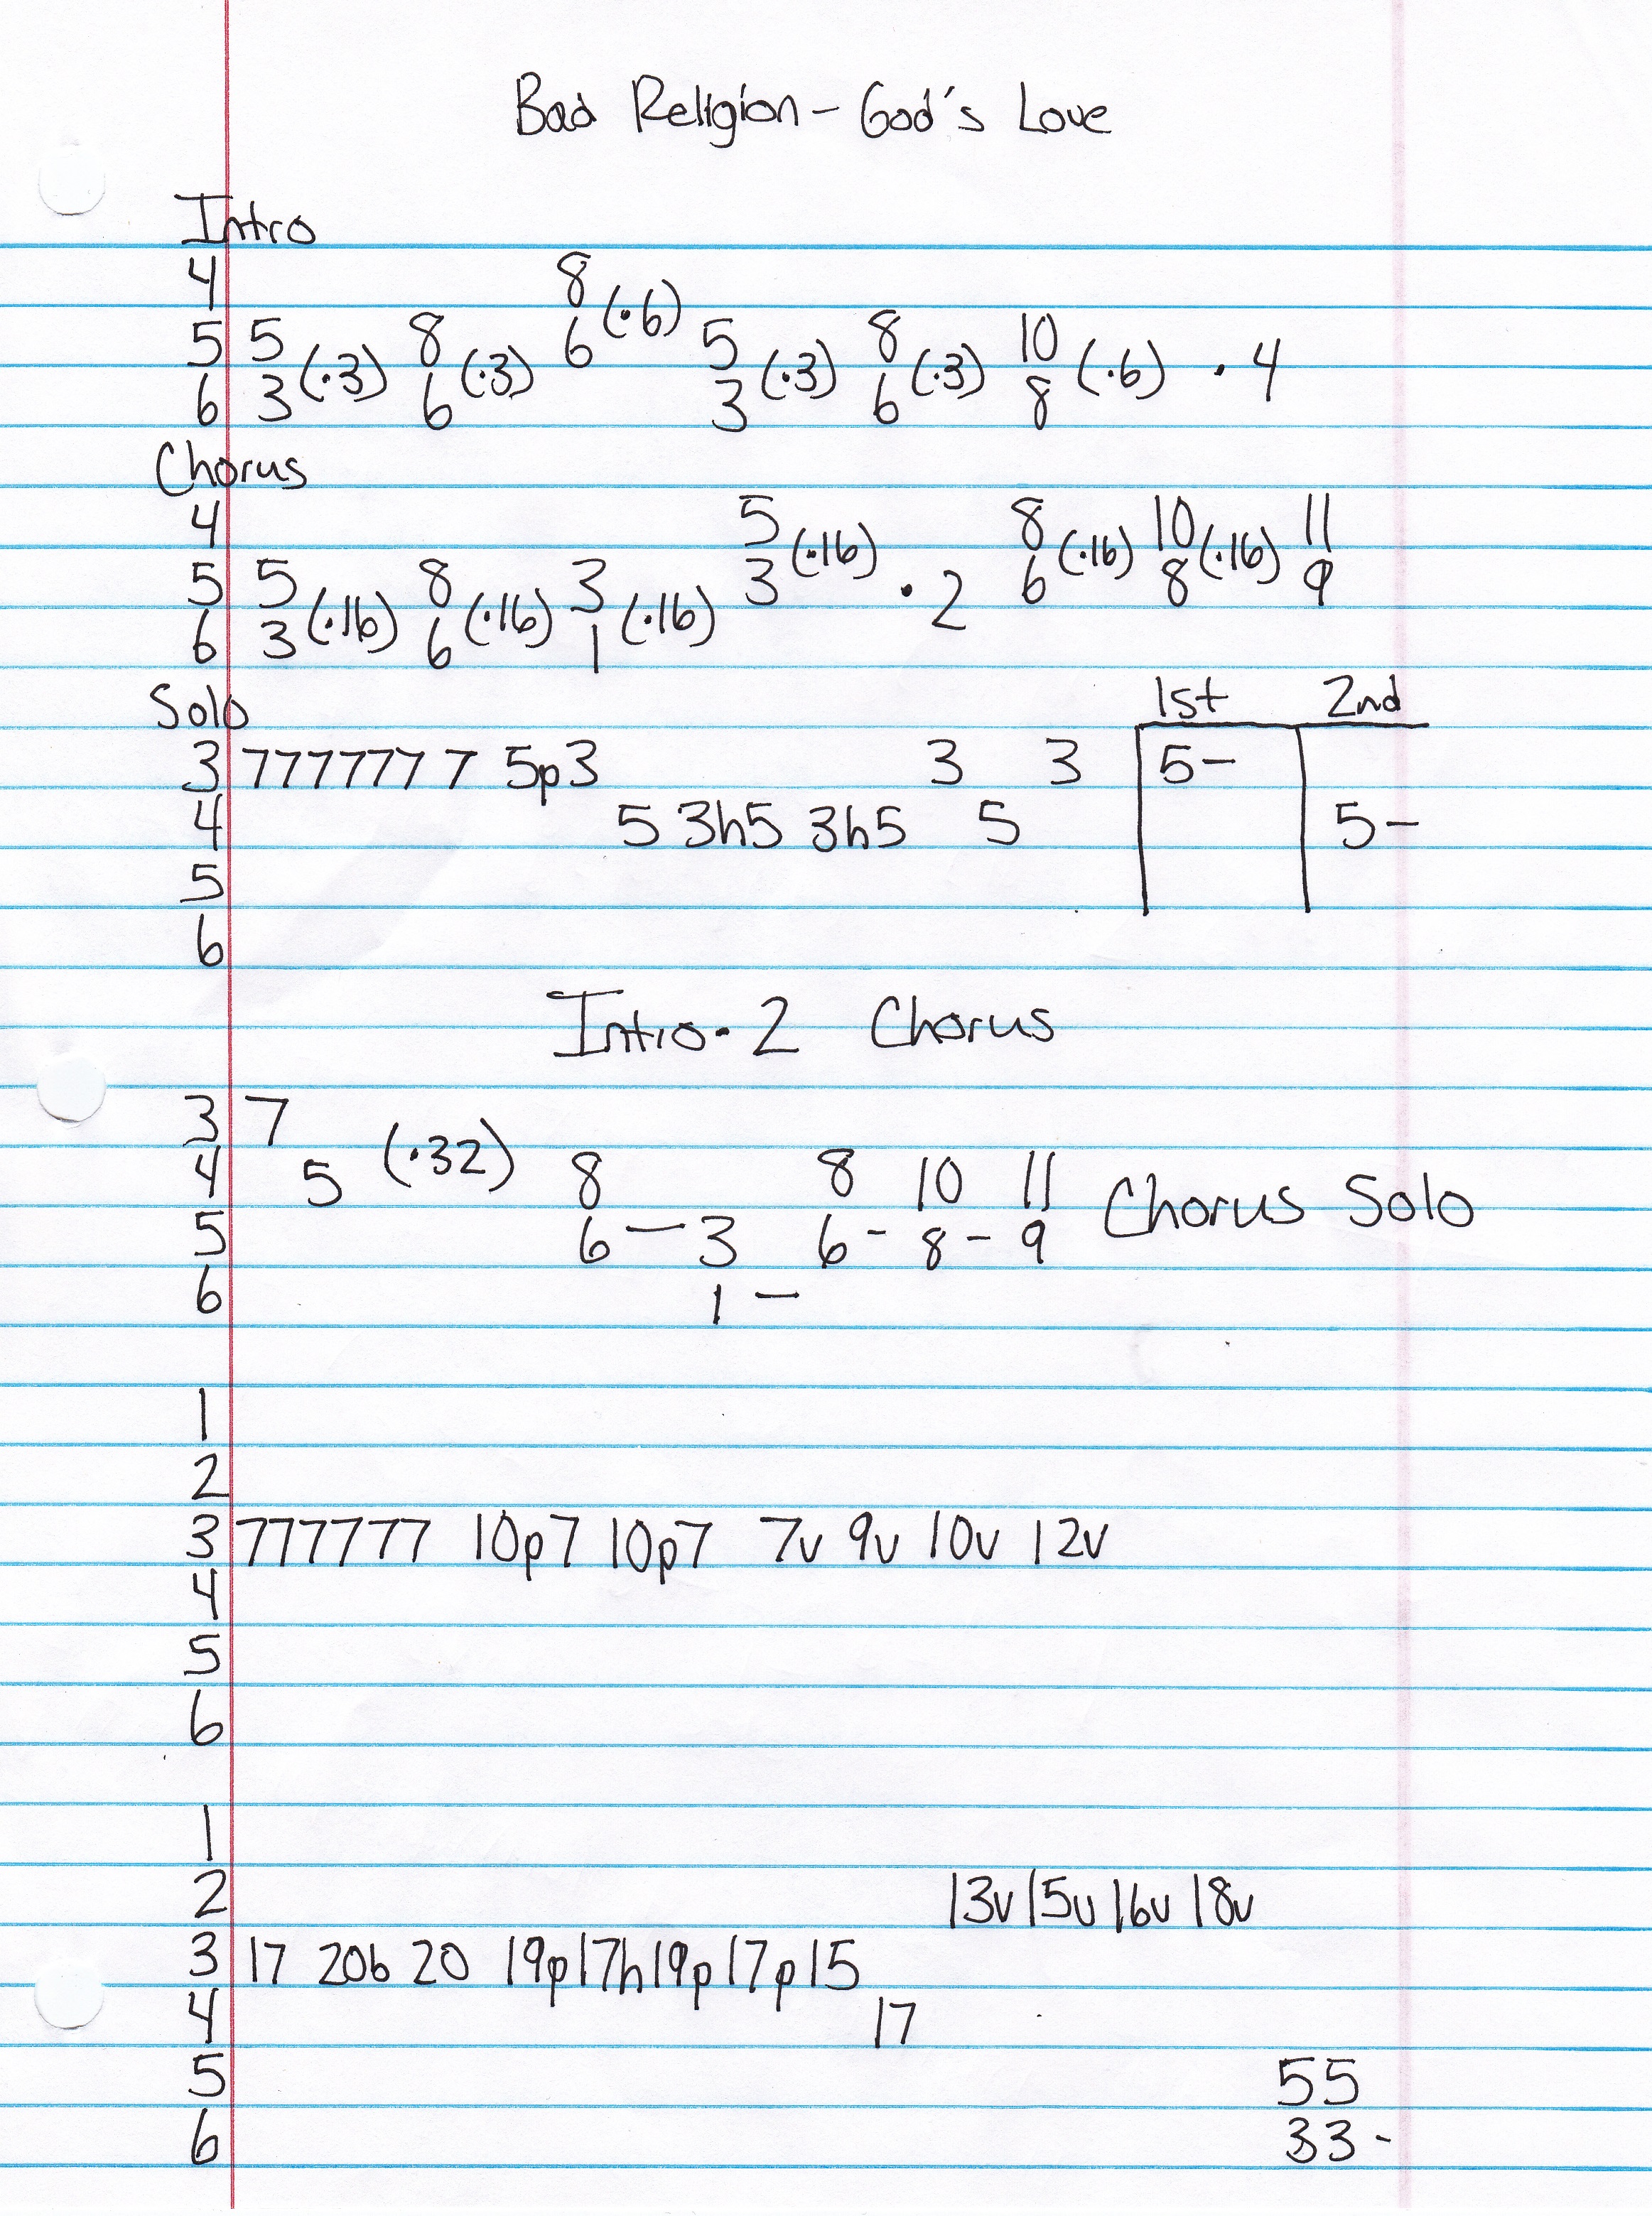 Bad Religion - God's Love
Intro
4 8
5 5 (·3) 8 (·3) 6 (·6) 5 (·3) 8 (·3) 10 (·6) · 4
6 3 6 3 6 8
Chorus
4 5 (·16) 8 (·16) 10 (·16) 11
5 5 8 3 3 · 2 6 8 9
6 3 (·16) 6 (·16) 1 (·16)
Solo 1st 2nd
3 7777777 7 5p3 3 3 5-
4 5 3h5 3h5 5 5-
5
6
Intro · 2 Chorus
3 7
4 5 (·32) 8 8 10 11 Chorus Solo
5 6 - 3 6 - 8 - 9
6 1 -
1
2
3 777777 10p7 10p7 7v 9v 10v 12v
4
5
6
1
2 13v 15v 16v 18v
3 17 20b 20 19p17h19p17p15
4 17
5 55
6 33 -